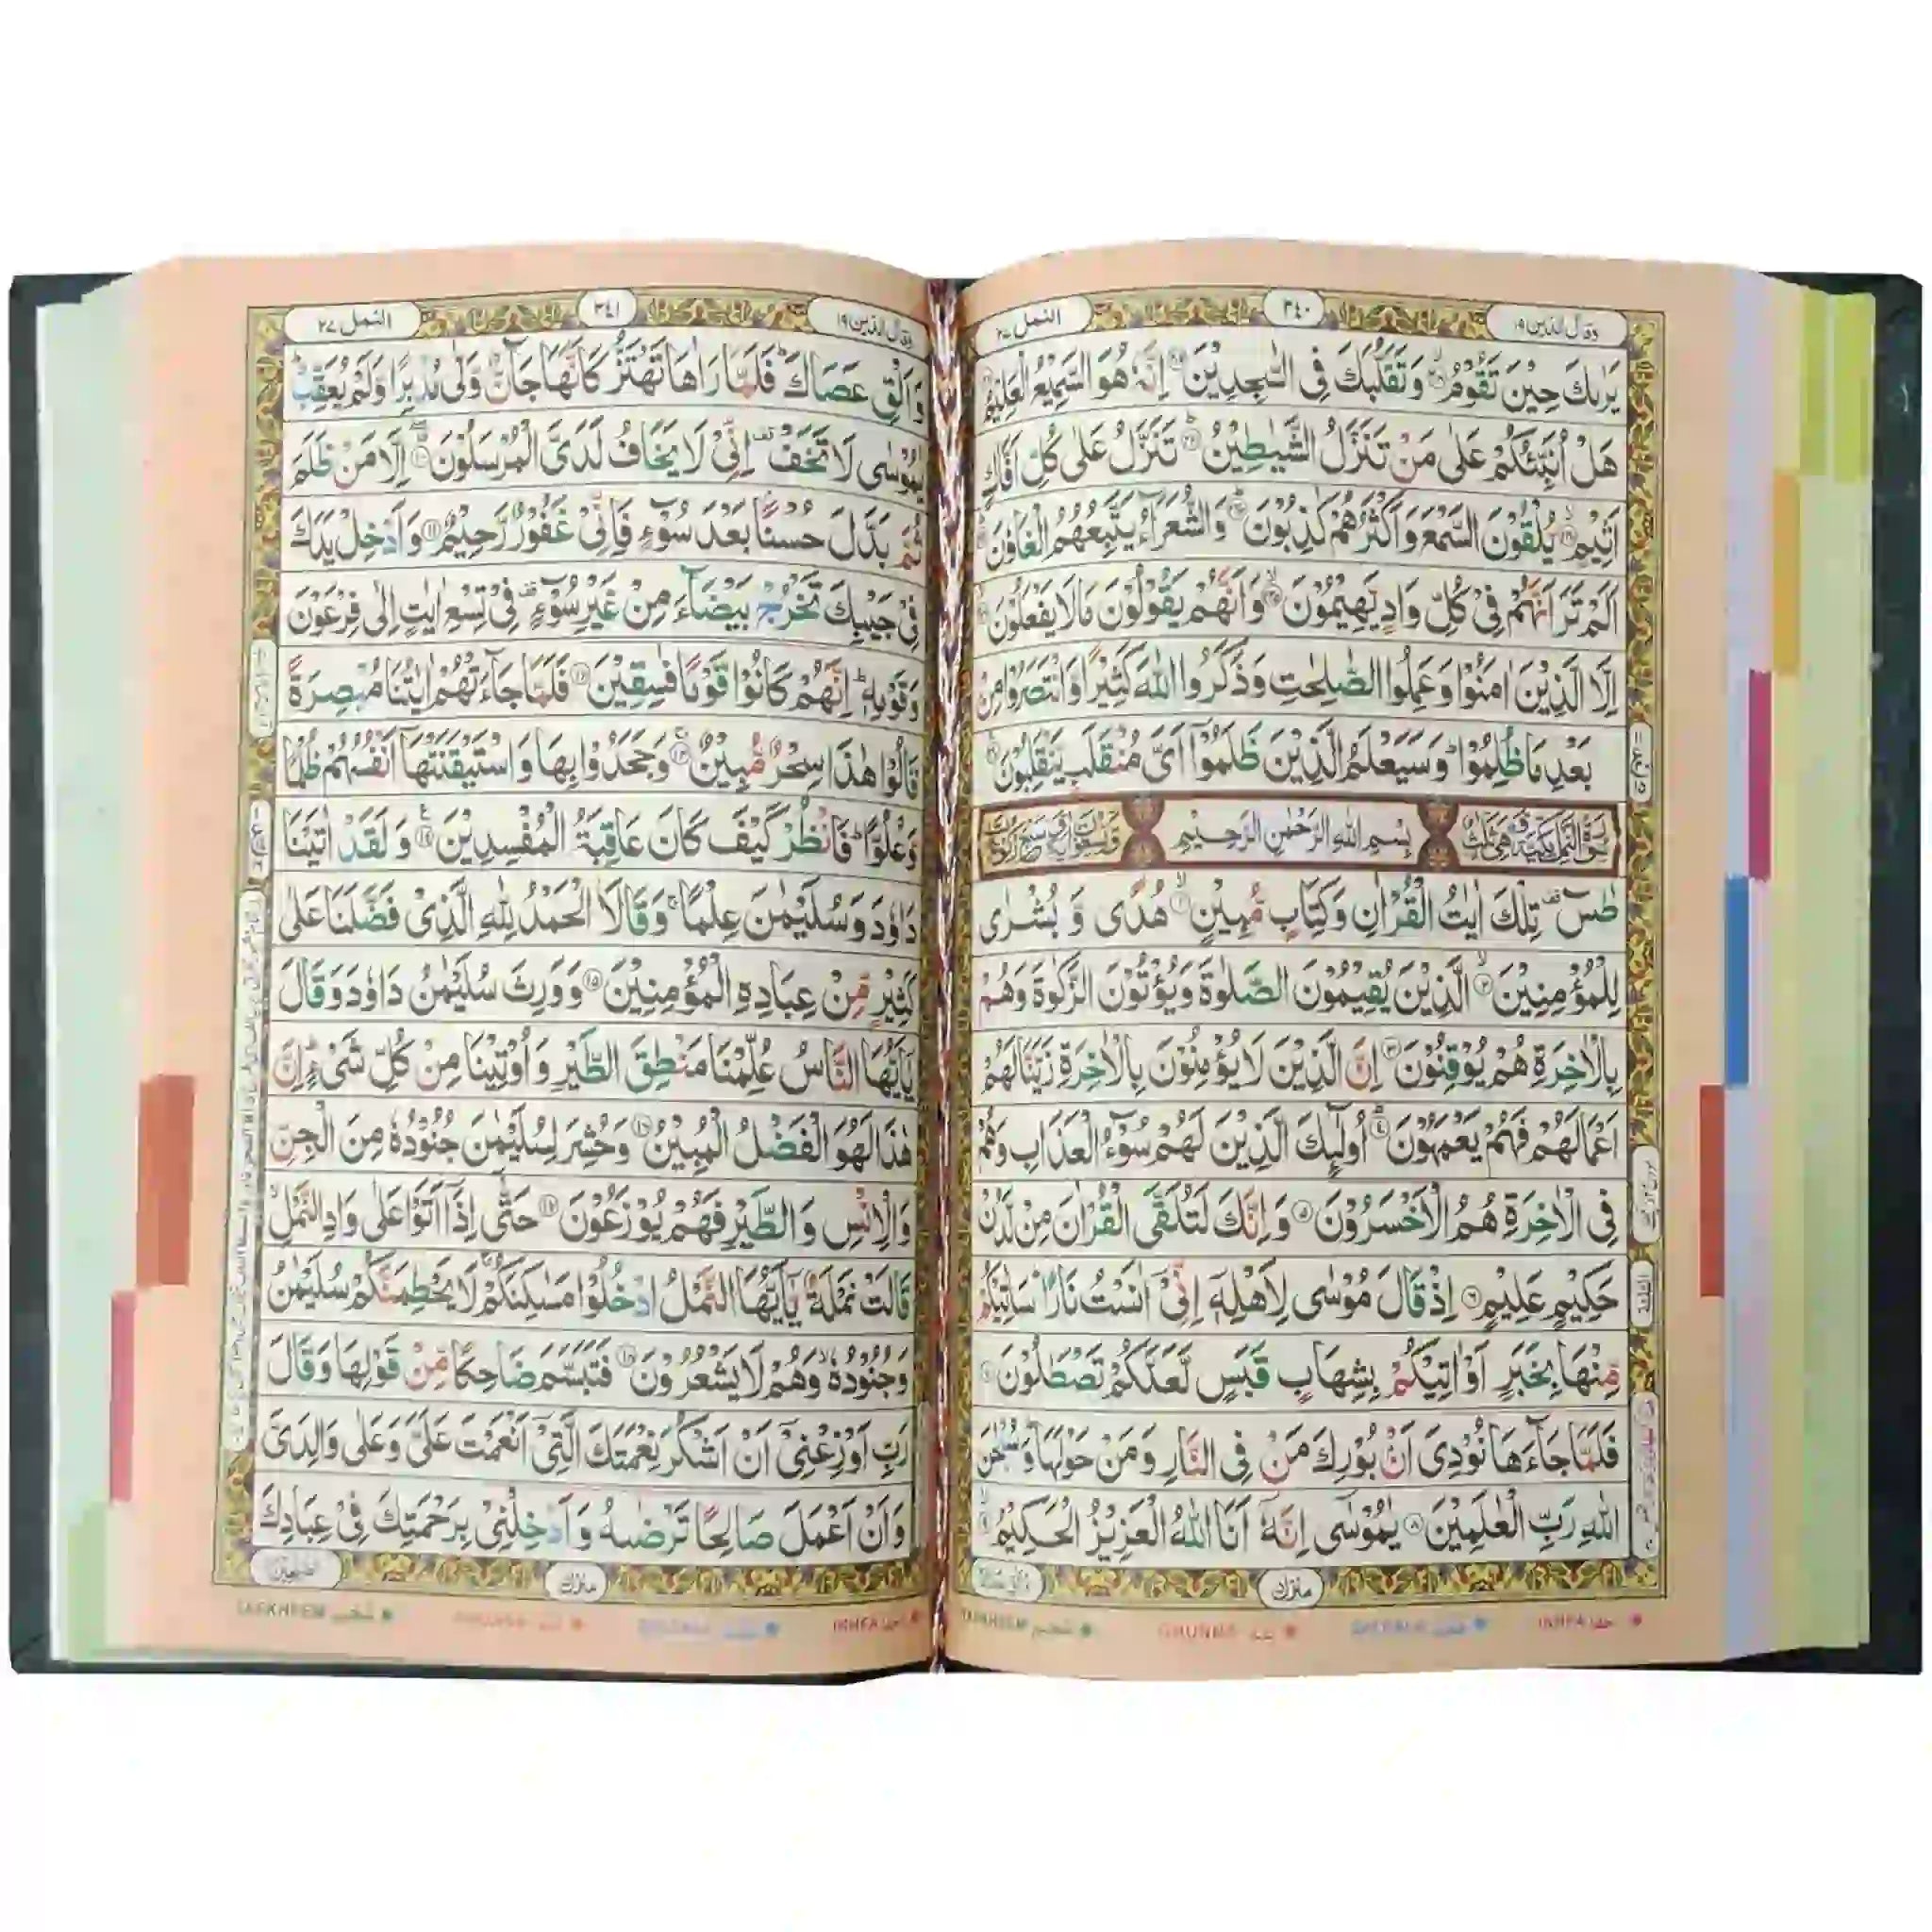 وقال الذین ۱۹
۳۴۰
النمل ۲۷
یَرٰىكَ حِیْنَ تَقُوْمُ ۙ۝۲۱۸ وَتَقَلُّبَكَ فِی السّٰجِدِیْنَ ۝۲۱۹ اِنَّهٗ هُوَ السَّمِیْعُ الْعَلِیْمُ
هَلْ اُنَبِّئُكُمْ عَلٰی مَنْ تَنَزَّلُ الشَّیٰطِیْنُ ؕ۝ تَنَزَّلُ عَلٰی كُلِّ اَفَّاكٍ
اَثِیْمٍ ۙ۝ یُّلْقُوْنَ السَّمْعَ وَاَكْثَرُهُمْ كٰذِبُوْنَ ؕ۝ وَالشُّعَرَآءُ یَتَّبِعُهُمُ الْغَاوٗنَ
اَلَمْ تَرَ اَنَّهُمْ فِیْ كُلِّ وَادٍ یَّهِیْمُوْنَ ۙ۝ وَاَنَّهُمْ یَقُوْلُوْنَ مَا لَا یَفْعَلُوْنَ
اِلَّا الَّذِیْنَ اٰمَنُوْا وَعَمِلُوا الصّٰلِحٰتِ وَذَكَرُوا اللّٰهَ كَثِیْرًا وَّانْتَصَرُوْا مِنْۢ
بَعْدِ مَا ظُلِمُوْا ؕ وَسَیَعْلَمُ الَّذِیْنَ ظَلَمُوْۤا اَیَّ مُنْقَلَبٍ یَّنْقَلِبُوْنَ
بِسْمِ اللّٰهِ الرَّحْمٰنِ الرَّحِیْمِ
طٰسٓ ۫ تِلْكَ اٰیٰتُ الْقُرْاٰنِ وَكِتَابٍ مُّبِیْنٍ ۙ۝۱ هُدًی وَّ بُشْرٰی
لِلْمُؤْمِنِیْنَ ۙ۝۲ الَّذِیْنَ یُقِیْمُوْنَ الصَّلٰوةَ وَیُؤْتُوْنَ الزَّكٰوةَ وَهُمْ
بِالْاٰخِرَةِ هُمْ یُوْقِنُوْنَ ۝۳ اِنَّ الَّذِیْنَ لَا یُؤْمِنُوْنَ بِالْاٰخِرَةِ زَیَّنَّا لَهُمْ
اَعْمَالَهُمْ فَهُمْ یَعْمَهُوْنَ ؕ۝۴ اُولٰٓىِٕكَ الَّذِیْنَ لَهُمْ سُوْٓءُ الْعَذَابِ وَهُمْ
فِی الْاٰخِرَةِ هُمُ الْاَخْسَرُوْنَ ۝۵ وَاِنَّكَ لَتُلَقَّی الْقُرْاٰنَ مِنْ لَّدُنْ
حَكِیْمٍ عَلِیْمٍ ۝۶ اِذْ قَالَ مُوْسٰی لِاَهْلِهٖۤ اِنِّیْۤ اٰنَسْتُ نَارًا ؕ سَاٰتِیْكُمْ
مِّنْهَا بِخَبَرٍ اَوْ اٰتِیْكُمْ بِشِهَابٍ قَبَسٍ لَّعَلَّكُمْ تَصْطَلُوْنَ
فَلَمَّا جَآءَهَا نُوْدِیَ اَنْۢ بُوْرِكَ مَنْ فِی النَّارِ وَمَنْ حَوْلَهَا ؕ وَسُبْحٰنَ
اللّٰهِ رَبِّ الْعٰلَمِیْنَ ۝۸ یٰمُوْسٰۤی اِنَّهٗۤ اَنَا اللّٰهُ الْعَزِیْزُ الْحَكِیْمُ
منزل
TAFKHEEM تفخیم
GHUNNA غنہ
QALQALA قلقلہ
IKHFA اخفا
وقال الذین ۱۹
۳۴۱
النمل ۲۷
وَاَلْقِ عَصَاكَ ؕ فَلَمَّا رَاٰهَا تَهْتَزُّ كَاَنَّهَا جَآنٌّ وَّلّٰی مُدْبِرًا وَّلَمْ یُعَقِّبْ ؕ
یٰمُوْسٰی لَا تَخَفْ ۫ اِنِّیْ لَا یَخَافُ لَدَیَّ الْمُرْسَلُوْنَ ۝۱۰ اِلَّا مَنْ ظَلَمَ
ثُمَّ بَدَّلَ حُسْنًۢا بَعْدَ سُوْٓءٍ فَاِنِّیْ غَفُوْرٌ رَّحِیْمٌ ۝۱۱ وَاَدْخِلْ یَدَكَ
فِیْ جَیْبِكَ تَخْرُجْ بَیْضَآءَ مِنْ غَیْرِ سُوْٓءٍ ۫ فِیْ تِسْعِ اٰیٰتٍ اِلٰی فِرْعَوْنَ
وَقَوْمِهٖ ؕ اِنَّهُمْ كَانُوْا قَوْمًا فٰسِقِیْنَ ۝۱۲ فَلَمَّا جَآءَتْهُمْ اٰیٰتُنَا مُبْصِرَةً
قَالُوْا هٰذَا سِحْرٌ مُّبِیْنٌ ۚ۝۱۳ وَجَحَدُوْا بِهَا وَاسْتَیْقَنَتْهَاۤ اَنْفُسُهُمْ ظُلْمًا
وَّعُلُوًّا ؕ فَانْظُرْ كَیْفَ كَانَ عَاقِبَةُ الْمُفْسِدِیْنَ ۝۱۴ وَلَقَدْ اٰتَیْنَا
دَاوٗدَ وَسُلَیْمٰنَ عِلْمًا ۚ وَقَالَا الْحَمْدُ لِلّٰهِ الَّذِیْ فَضَّلَنَا عَلٰی
كَثِیْرٍ مِّنْ عِبَادِهِ الْمُؤْمِنِیْنَ ۝۱۵ وَوَرِثَ سُلَیْمٰنُ دَاوٗدَ وَقَالَ
یٰۤاَیُّهَا النَّاسُ عُلِّمْنَا مَنْطِقَ الطَّیْرِ وَاُوْتِیْنَا مِنْ كُلِّ شَیْءٍ ؕ اِنَّ
هٰذَا لَهُوَ الْفَضْلُ الْمُبِیْنُ ۝۱۶ وَحُشِرَ لِسُلَیْمٰنَ جُنُوْدُهٗ مِنَ الْجِنِّ
وَالْاِنْسِ وَالطَّیْرِ فَهُمْ یُوْزَعُوْنَ ۝۱۷ حَتّٰۤی اِذَاۤ اَتَوْا عَلٰی وَادِ النَّمْلِ ۙ
قَالَتْ نَمْلَةٌ یّٰۤاَیُّهَا النَّمْلُ ادْخُلُوْا مَسٰكِنَكُمْ ۚ لَا یَحْطِمَنَّكُمْ سُلَیْمٰنُ
وَجُنُوْدُهٗ ۙ وَهُمْ لَا یَشْعُرُوْنَ ۝۱۸ فَتَبَسَّمَ ضَاحِكًا مِّنْ قَوْلِهَا وَقَالَ
رَبِّ اَوْزِعْنِیْۤ اَنْ اَشْكُرَ نِعْمَتَكَ الَّتِیْۤ اَنْعَمْتَ عَلَیَّ وَعَلٰی وَالِدَیَّ
وَاَنْ اَعْمَلَ صَالِحًا تَرْضٰىهُ وَاَدْخِلْنِیْ بِرَحْمَتِكَ فِیْ عِبَادِكَ
منزل
TAFKHEEM تفخیم
GHUNNA غنہ
QALQALA قلقلہ
IKHFA اخفا